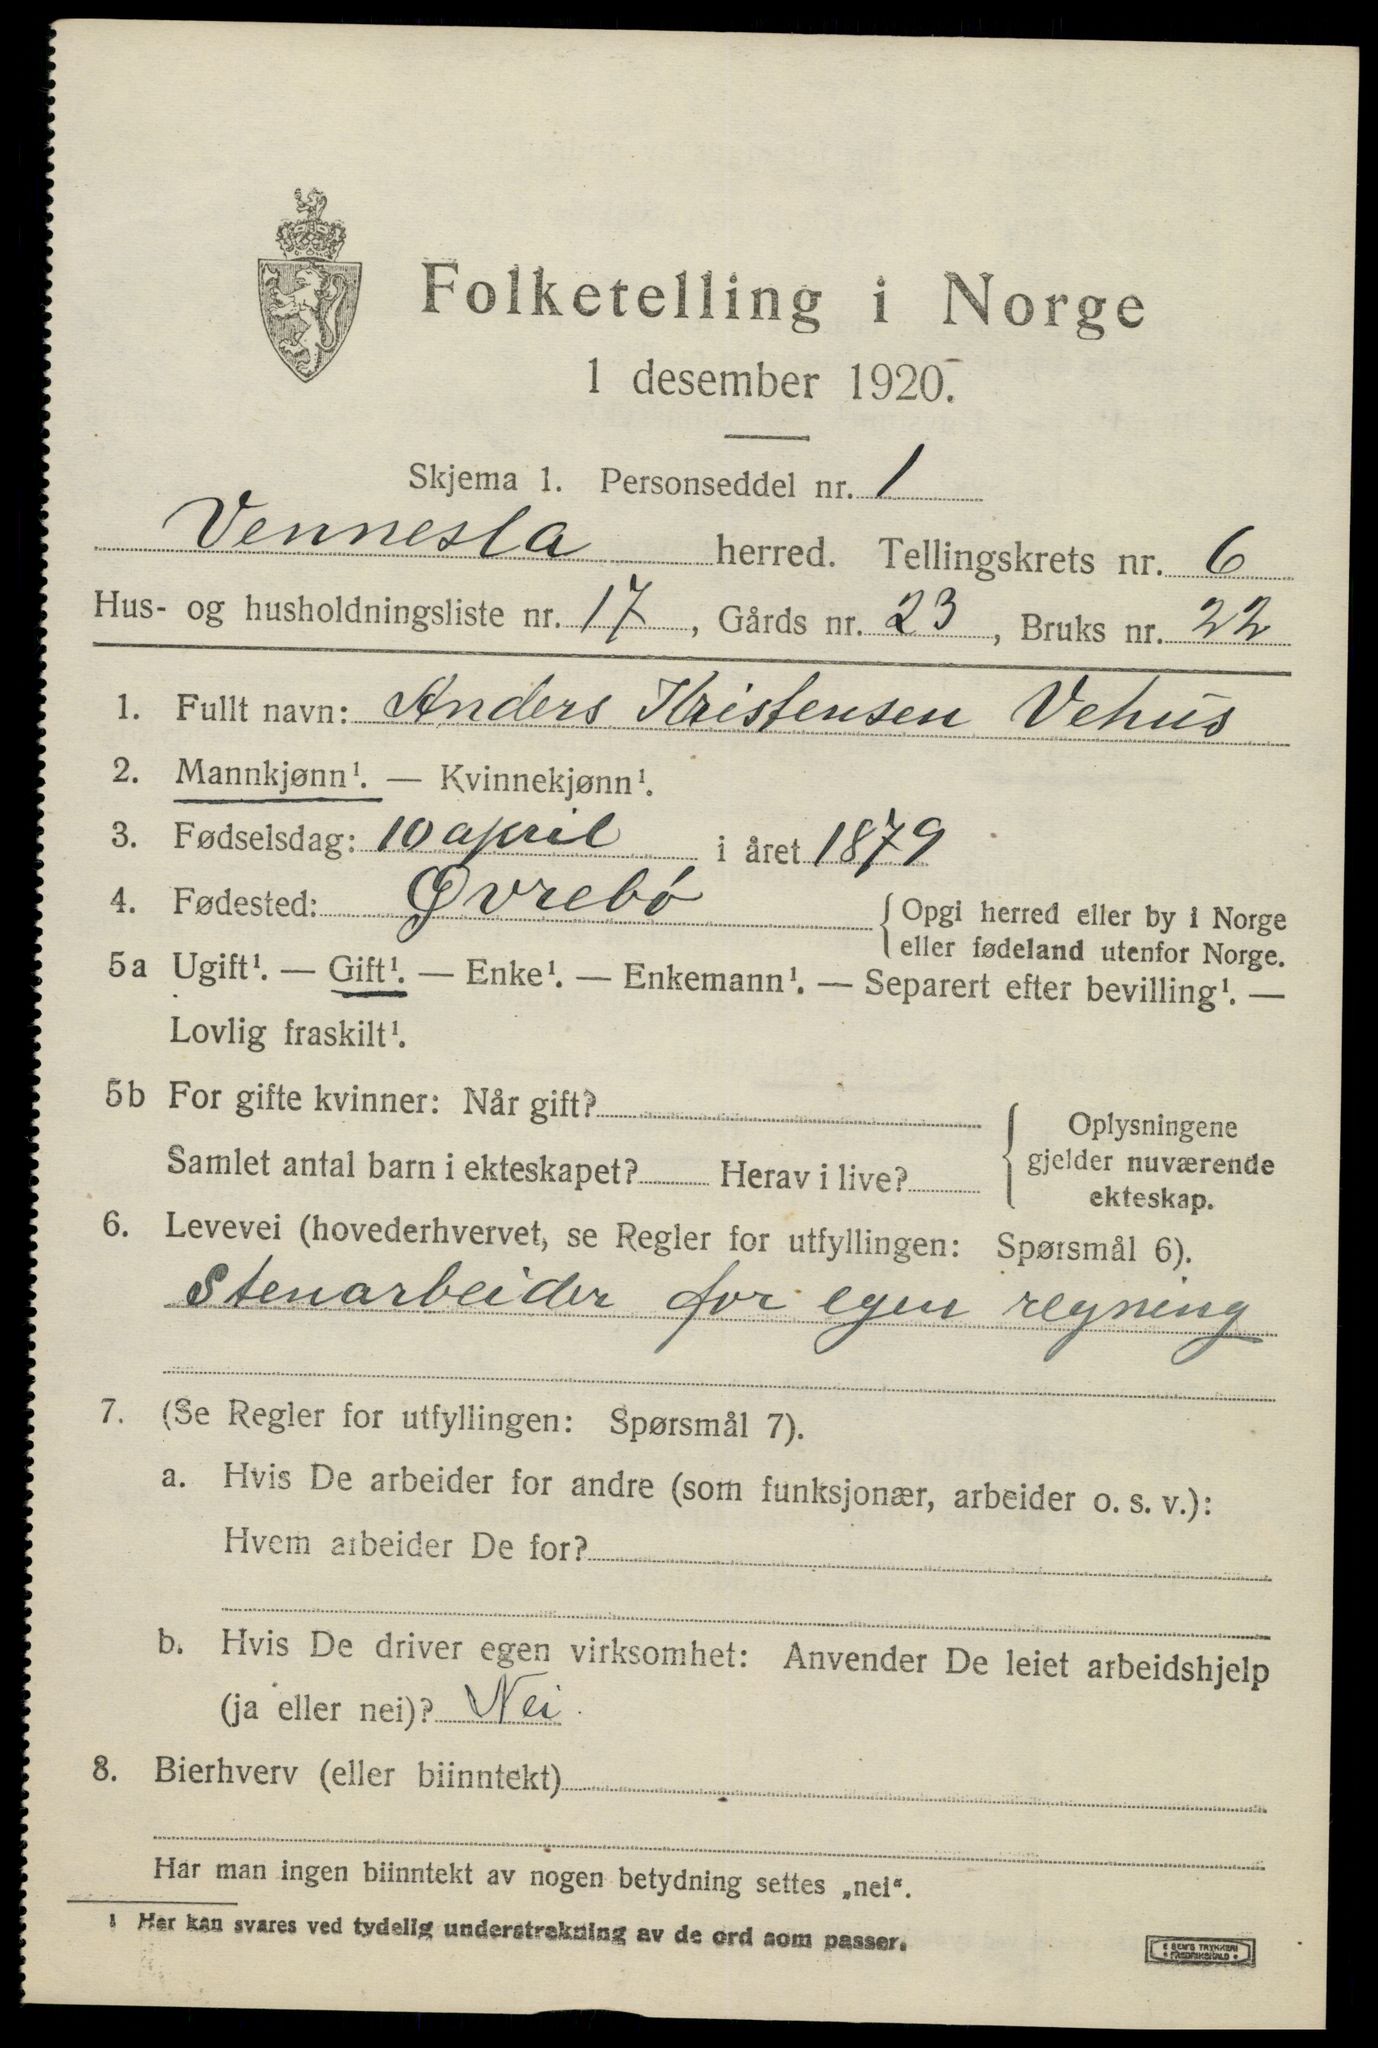 Folketelling i Norge
1 desember 1920.
Skjema 1. Personseddel nr. 1
Vennesla herred. Tellingskrets nr. 6
Hus- og husholdningsliste nr. 17, Gårds nr. 23, Bruks nr. 22
1. Fullt navn: Anders Kristensen Vehus
2. Mannkjønn¹. — Kvinnekjønn¹.
3. Fødselsdag: 10 april i året 1879
4. Fødested: Øvrebø { Opgi herred eller by i Norge
eller fødeland utenfor Norge.
5a Ugift¹. — Gift¹. — Enke¹. — Enkemann¹. — Separert efter bevilling¹. —
Lovlig fraskilt¹.
5b For gifte kvinner: Når gift?
Samlet antal barn i ekteskapet? Herav i live?
{ Oplysningene
gjelder nuværende
ekteskap.
6. Levevei (hovederhvervet, se Regler for utfyllingen: Spørsmål 6).
Stenarbeider for egen regning
7. (Se Regler for utfyllingen: Spørsmål 7).
a. Hvis De arbeider for andre (som funksjonær, arbeider o. s. v.):
Hvem arbeider De for?
b. Hvis De driver egen virksomhet: Anvender De leiet arbeidshjelp
(ja eller nei)? Nei
8. Bierhverv (eller biinntekt)
Har man ingen biinntekt av nogen betydning settes „nei“.
1 Her kan svares ved tydelig understrekning av de ord som passer.
E SEM'S TRYKKERI
FREDRIKSHALD